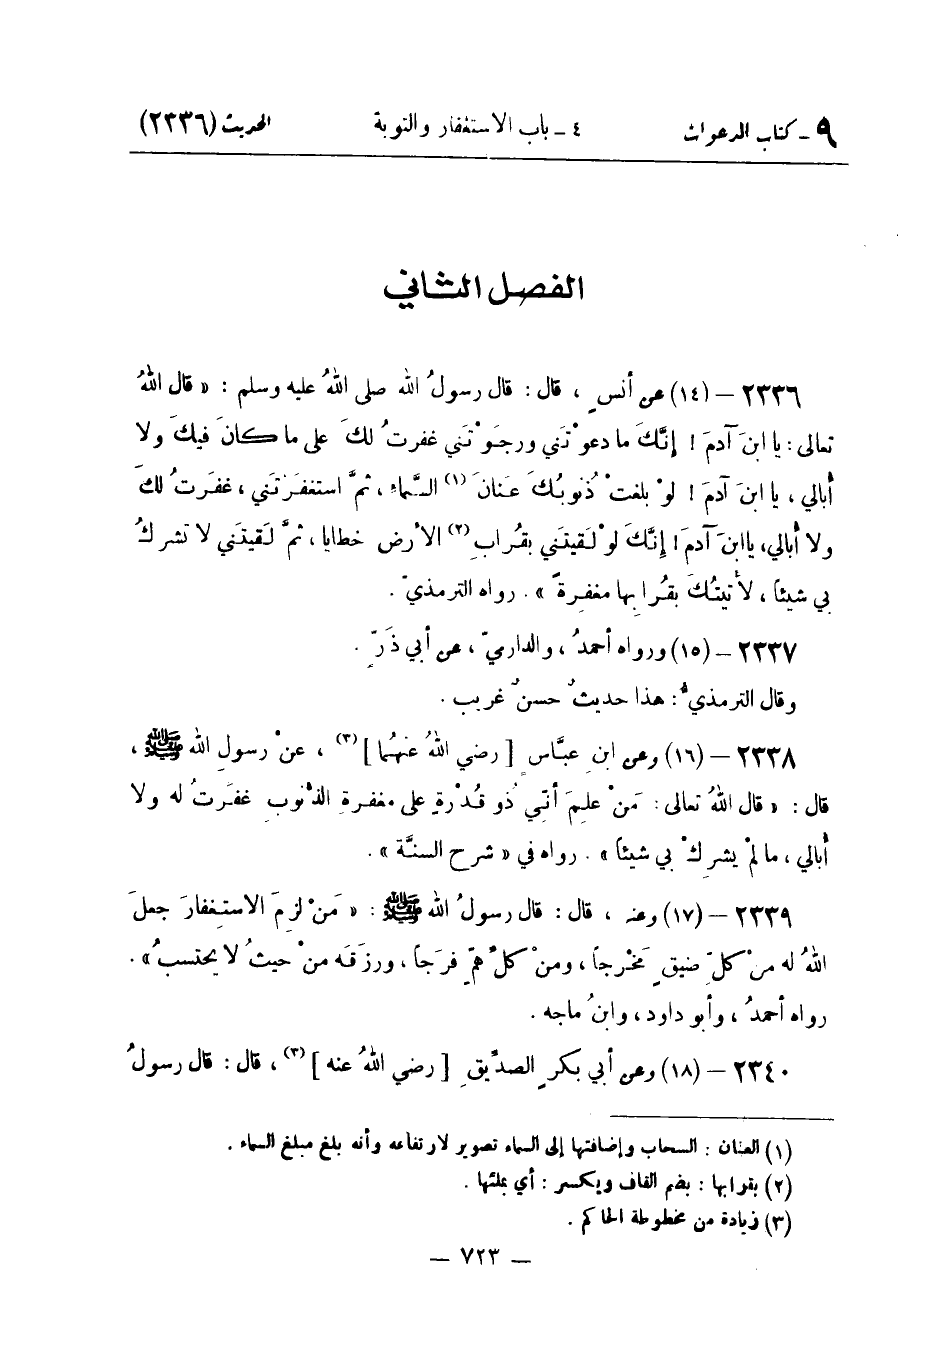 ٩ - كتاب الدعوات ٤ - باب الاستغفار والتوبة الحديث (٢٣٣٦)
الفصل الثاني
٢٣٣٦ - (١٤) عن أنسٍ ، قال : قال رسولُ الله صلى اللهُ عليه وسلم : « قال اللهُ
تعالى : يا ابنَ آدمَ ! إنَّكَ ما دعوْتَني ورجَوْتَني غفرتُ لكَ على ما كانَ فيكَ ولا
أبالي ، يا ابنَ آدمَ ! لوْ بلغتْ ذُنوبُكَ عَنانَ (١) السَّماء ، ثمَّ استغفَرتَني ، غفَرتُ لكَ
ولا أُبالي، ياابنَ آدمَ! إنَّكَ لوْ لَقيتَني بقُرابِ (٢) الأرضِ خطايا ، ثمَّ لَقيتَني لا تشركُ
بي شيئاً ، لأتيتُكَ بقُرابِها مغفِرةً » . رواه الترمذيّ .
٢٣٣٧ - (١٥) ورواه أحمدُ ، والدارميّ ، عن أبي ذَرّ .
وقال الترمذيُّ : هذا حديثٌ حسنٌ غريب .
٢٣٣٨ - (١٦) وعن ابنِ عبَّاسٍ [ رضي اللهُ عنهُما ] (٣) ، عنْ رسولِ الله ﷺ ،
قال : « قال اللهُ تعالى : مَنْ علِمَ أنّي ذو قُدْرةٍ على مغفرةِ الذنوبِ غفَرتُ له ولا
أبالي ، ما لمْ يشرِكْ بي شيئاً » . رواه في « شرح السنَّة » .
٢٣٣٩ - (١٧) وعنه ، قال : قال رسولُ الله ﷺ : « مَنْ لزِمَ الاستِغفارَ جعلَ
اللهُ له منْ كلِّ ضيقٍ مَخْرجاً ، ومنْ كلِّ همٍّ فرَجاً ، ورزَقَه منْ حيثُ لا يحتسبُ » .
رواه أحمدُ ، وأبو داود ، وابنُ ماجه .
٢٣٤٠ - (١٨) وعن أبي بكرٍ الصدِّيقِ [ رضي اللهُ عنه ] (٣) ، قال : قال رسولُ
(١) العنان : السحاب وإضافتها إلى السماء تصوير لارتفاعه وأنه بلغ مبلغ السماء .
(٢) بقرابها : بضم القاف ويكسر : أي بملئها .
(٣) زيادة من مخطوطة الحاكم .
- ٧٢٣ -